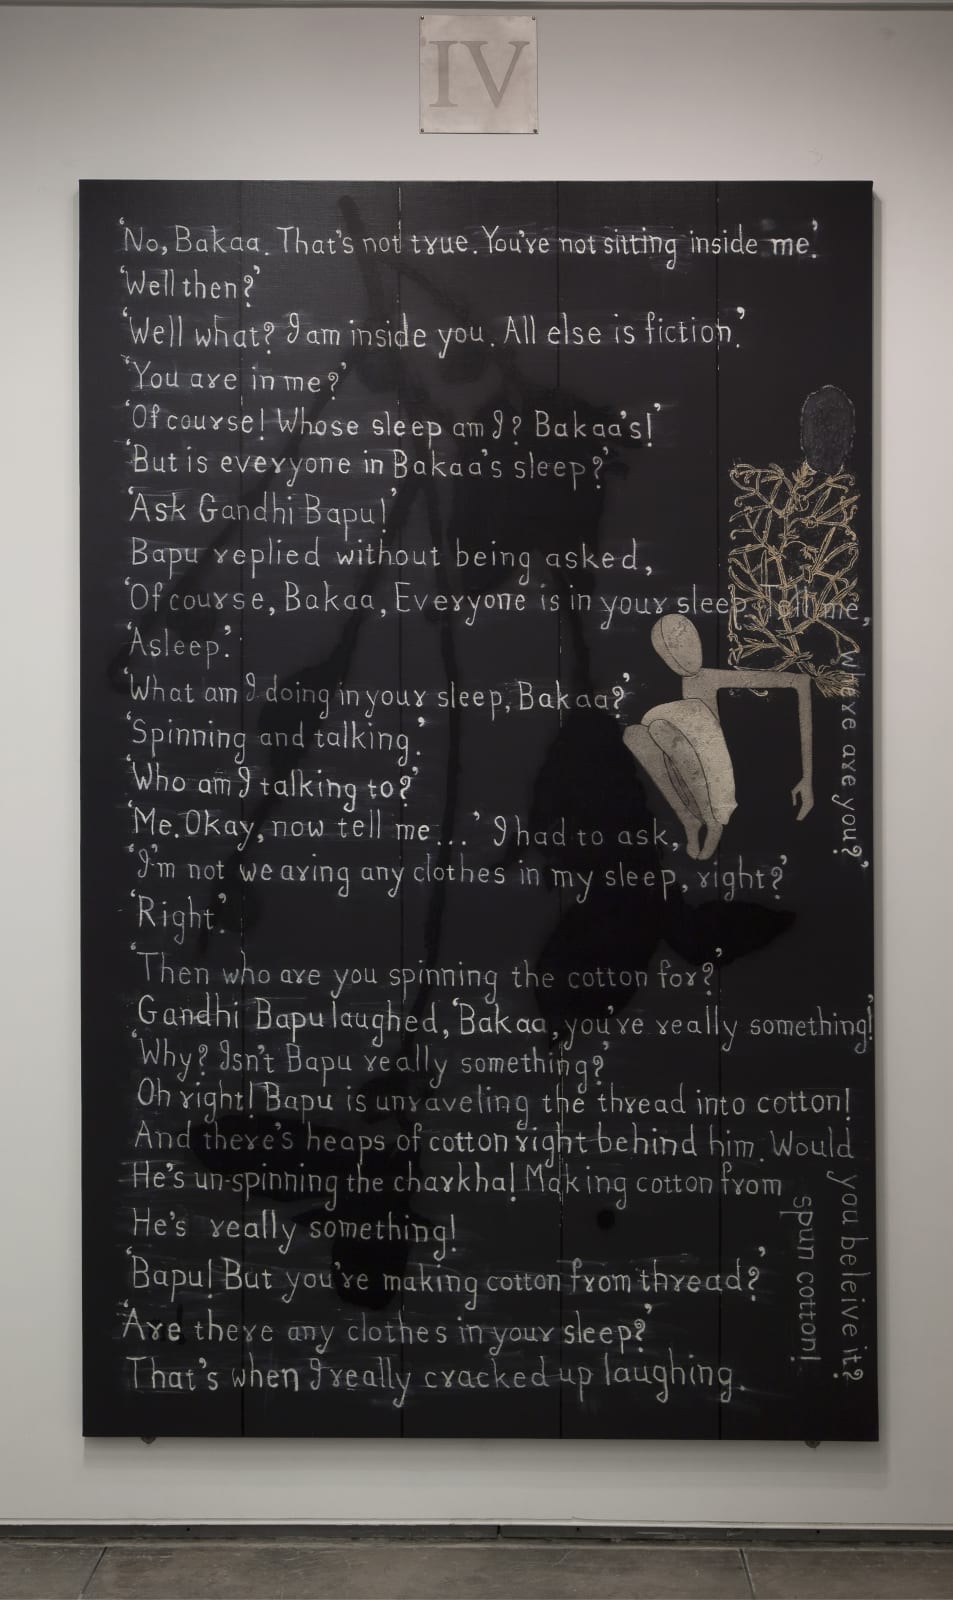 IV
'No, Bakaa. That's not true. You're not sitting inside me.'
'Well then?'
'Well what? I am inside you. All else is fiction.'
'You are in me?'
'Of course! Whose sleep am I? Bakaa's!'
'But is everyone in Bakaa's sleep?'
'Ask Gandhi Bapu!'
Bapu replied without being asked,
'Of course, Bakaa, Everyone is in your sleep. Tell me,
where are you?'
'Asleep.'
'What am I doing in your sleep, Bakaa?'
'Spinning and talking.'
'Who am I talking to?'
'Me. Okay, now tell me...' I had to ask,
'I'm not wearing any clothes in my sleep, right?'
'Right.'
'Then who are you spinning the cotton for?'
Gandhi Bapu laughed, 'Bakaa, you're really something!'
'Why? Isn't Bapu really something?'
Oh right! Bapu is unraveling the thread into cotton!
And there's heaps of cotton right behind him. Would
you beleive it?
He's un-spinning the charkha! Making cotton from
spun cotton!
He's really something!
'Bapu! But you're making cotton from thread?'
'Are there any clothes in your sleep?'
That's when I really cracked up laughing.